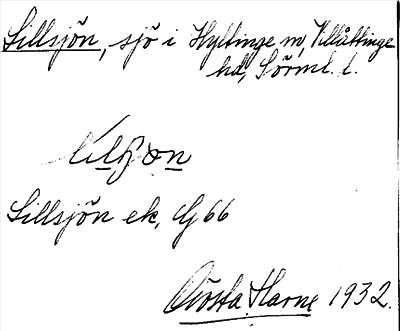 Sillsjön, sjö i Hyltinge sn, Villåttinge
hd, Sörml. l.
Sillsjön ek, G 66
Gösta Harne 1932.